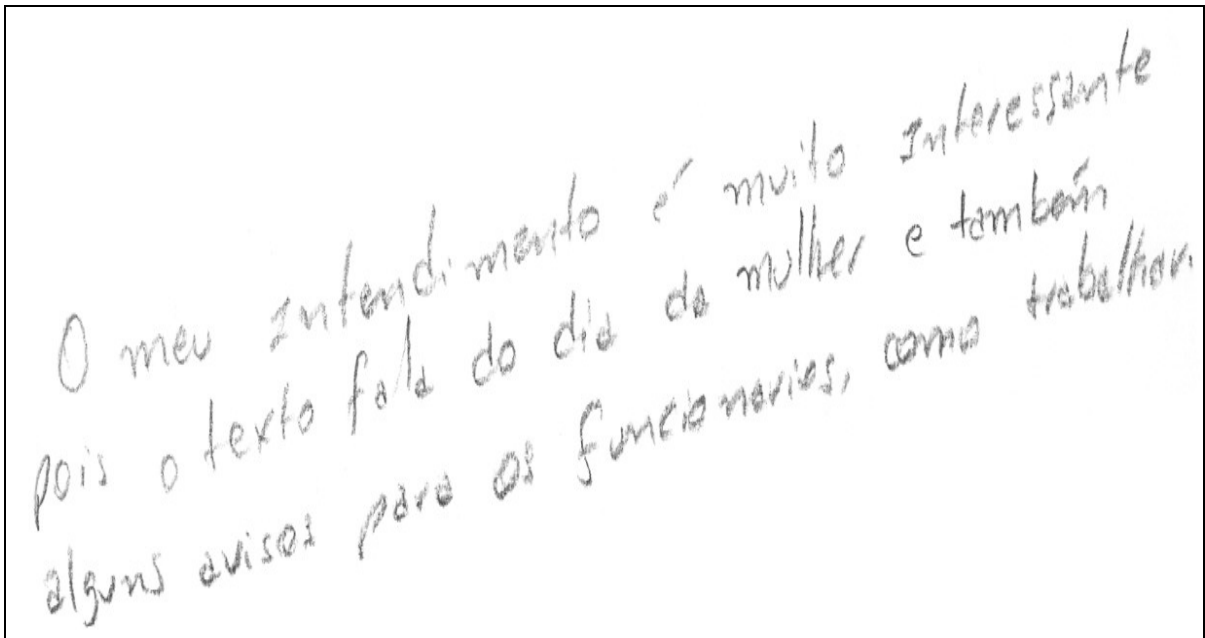 O meu intendimento é muito interessante
pois o texto fala do dia da mulher e também
alguns avisos para os funcionarios, como trabalhar.